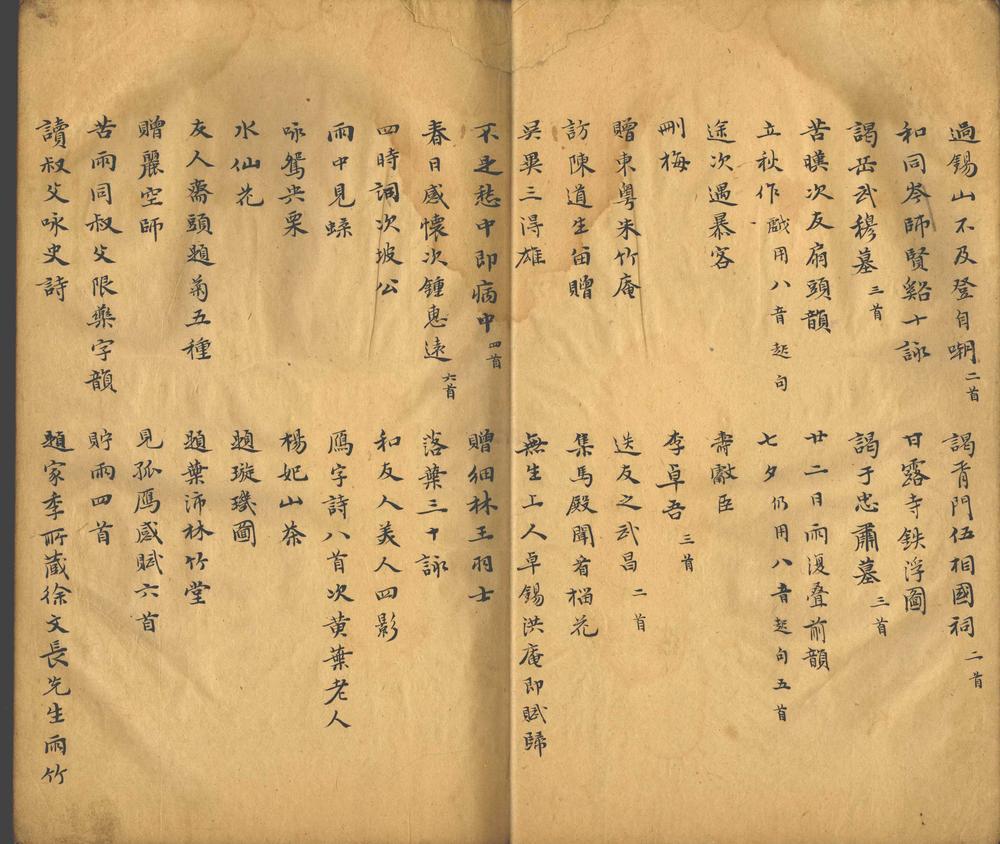 過錫山不及登自嘲二首　謁胥門伍相國祠二首
和同岑師賢谿十詠　甘露寺鉄浮圖
謁岳武穆墓三首　謁于忠肅墓三首
苦暵次友扇頭韻　廿二日雨復叠前韻
立秋作戲用八音起句　七夕仍用八音起句五首
途次遇暴客　壽獻臣
刪梅　李卓吾三首
贈東粵朱竹庵　送友之武昌二首
訪陳道生留贈　集馬殿聞看榴花
吳畢三得雄　無生上人卓錫洪庵即賦歸
不是愁中即病中四首　贈細林王羽士
春日感懷次鍾惠遠六首　落葉三十詠
四時詞次坡公　和友人美人四影
雨中見蝶　鴈字詩八首次黄葉老人
咏鴛央栗　楊妃山茶
水仙花　題璇璣圖
友人齋頭題菊五種　題葉沛林竹堂
贈麗空師　見孤鴈感賦六首
苦雨同叔父限藥字韻　貯雨四首
讀叔父咏史詩　題家季所藏徐文長先生雨竹